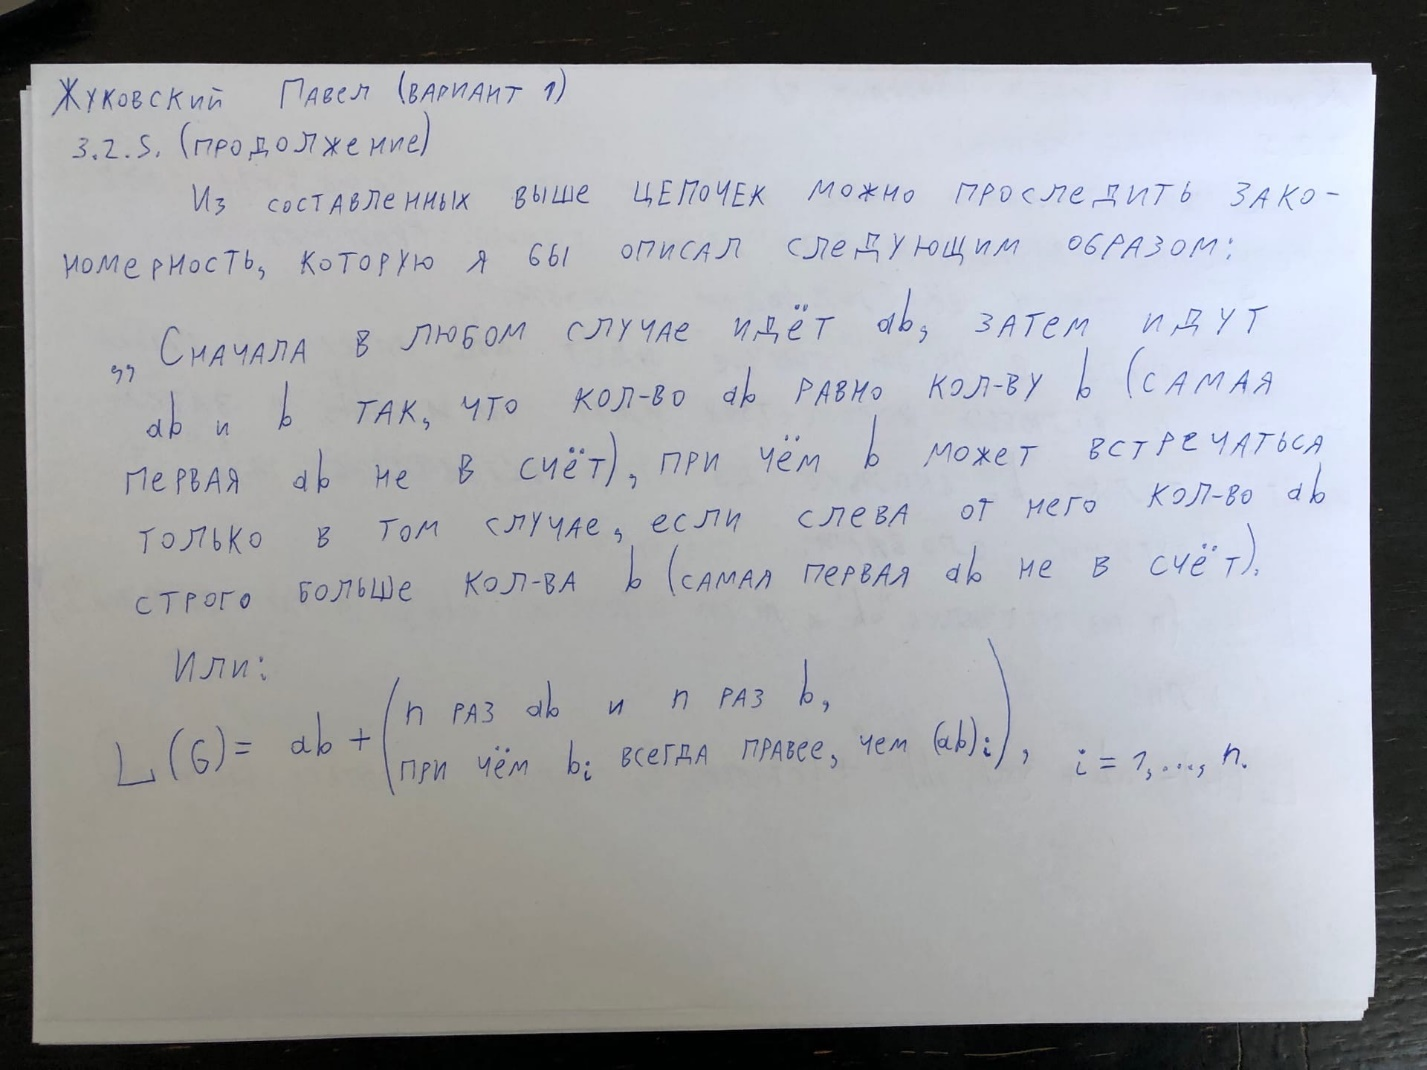 Жуковский Павел (вариант 1)
3.2.5. (продолжение)
Из составленных выше цепочек можно проследить зако-
номерность, которую я бы описал следующим образом:
„Сначала в любом случае идёт ab, затем идут
ab и b так, что кол-во ab равно кол-ву b (самая
первая ab не в счёт), при чём b может встречаться
только в том случае, если слева от него кол-во ab
строго больше кол-ва b (самая первая ab не в счёт).
Или:
L(G) = ab + (n раз ab и n раз b,
при чём bᵢ всегда правее, чем (ab)ᵢ), i = 1, ..., n.